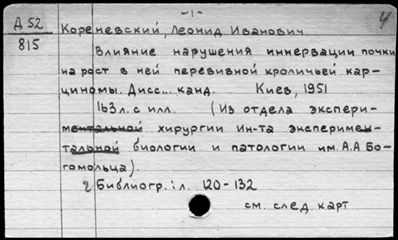 -1-
4
Д 52
815
Кореневский, Леонид Иванович.
Влияние нарушения иннервации почки
на рост в ней перевивной кроличьей кар-
циномы. Дисс... канд. Киев, 1951
163 л. с илл. (Из отдела экспери-
ментальной хирургии Ин-та эксперимен-
тальной биологии и патологии им. А.А Бо-
гомольца).
Библиогр.: л. 120-132
см. след. карт